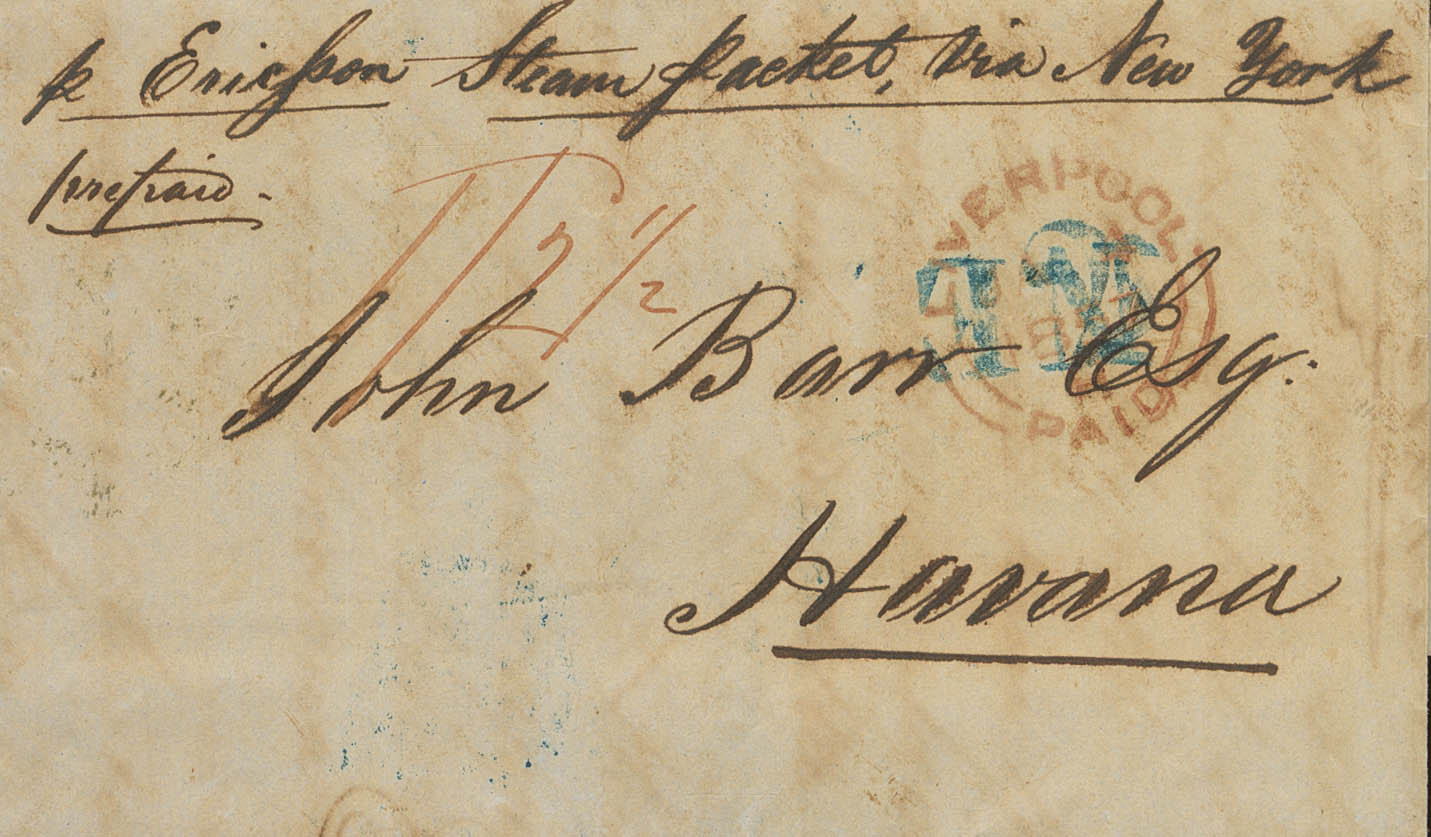 p Ericsson Steam packet, via New York
prepaid -
1/2 1/2
LIVERPOOL
1857
PAID
John Barr Esq.
Havana